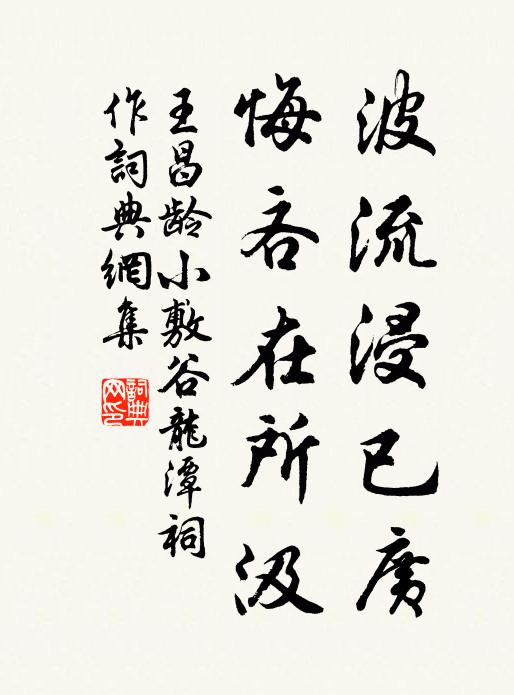 波流浸已廣
悔吝在所汲
王昌龄小敷谷龍潭祠
作詞典網集
詞典
网印